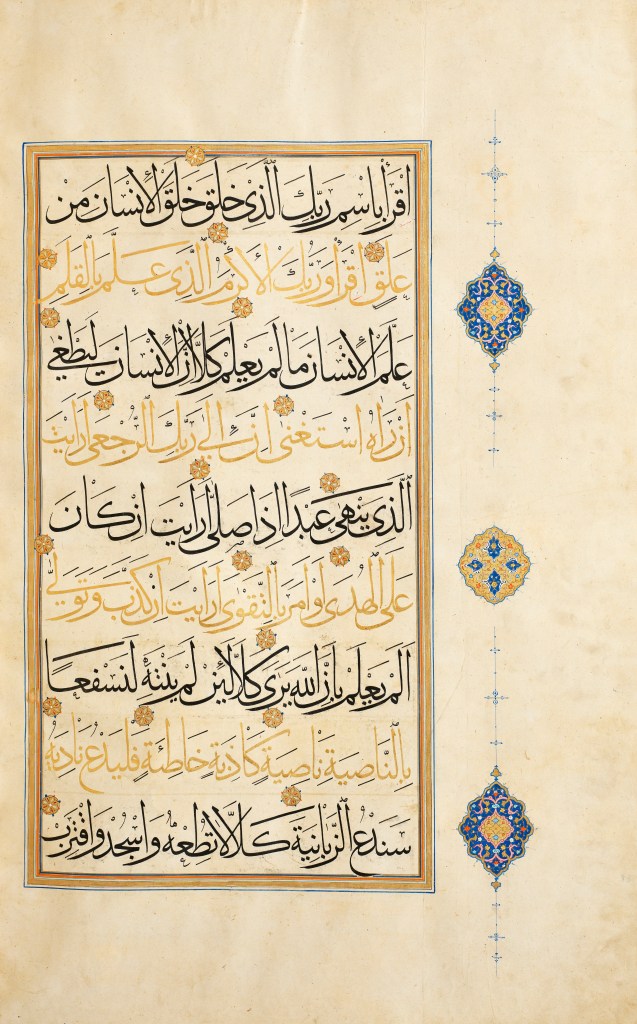 اقرأ باسم ربك الذى خلق خلق الإنسان من
علق اقرأ وربك الأكرم الذى علم بالقلم
علم الإنسان ما لم يعلم كلا إن الإنسان ليطغى
أن رآه استغنى إن إلى ربك الرجعى أرأيت
الذى ينهى عبدا إذا صلى أرأيت إن كان
على الهدى أو أمر بالتقوى أرأيت إن كذب وتولى
ألم يعلم بأن الله يرى كلا لئن لم ينته لنسفعا
بالناصية ناصية كاذبة خاطئة فليدع ناديه
سندع الزبانية كلا لا تطعه واسجد واقترب